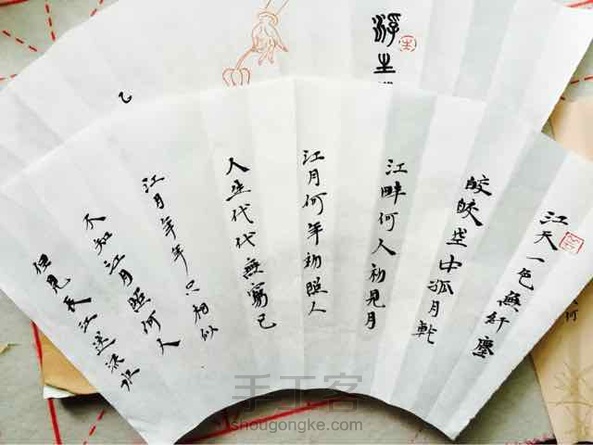 浮生
乙
江天一色無纤塵
皎皎空中孤月
江畔何人初見月
江月何年初照人
人生代代無窮已
江月年年只相似
不知江月照何人
但見長江送流水
手工客
shougongke.com